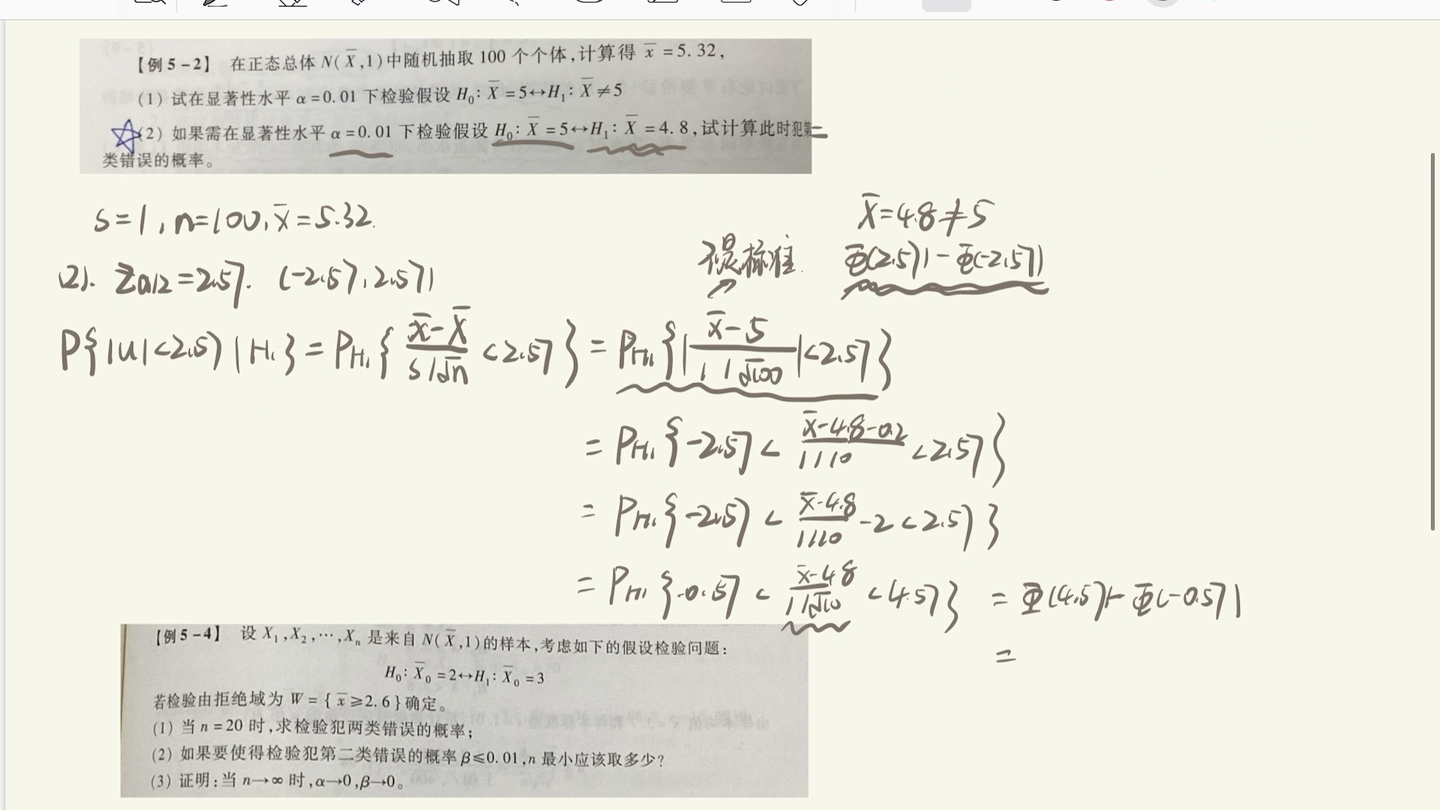 【例5-2】 在正态总体 N(X̄,1)中随机抽取 100 个个体,计算得 x̄=5.32,
(1) 试在显著性水平 α=0.01 下检验假设 H₀: X̄=5↔H₁: X̄≠5
(2) 如果需在显著性水平 α=0.01 下检验假设 H₀: X̄=5↔H₁: X̄=4.8,试计算此时犯第二
类错误的概率。
S=1, n=100, x̄=5.32.
(2). Zα/2=2.57. (-2.57, 2.57)
X̄=4.8≠5
标准. Φ(2.57)-Φ(-2.57)
P{|U|<2.57|H₁} = P_H₁{ (x̄-X̄)/(S/√n) <2.57} = P_H₁{| (x̄-5)/(1/√100) |<2.57}
= P_H₁{-2.57< (x̄-4.8-0.2)/(1/10) <2.57}
= P_H₁{-2.57< (x̄-4.8)/(1/10) -2<2.57}
= P_H₁{-0.57< (x̄-4.8)/(1/√100) <4.57} = Φ(4.57)-Φ(-0.57)
=
【例5-4】 设 X₁,X₂,⋯,Xₙ 是来自 N(X̄,1)的样本,考虑如下的假设检验问题:
H₀: X̄₀=2↔H₁: X̄₀=3
若检验由拒绝域为 W={x̄≥2.6}确定。
(1) 当 n=20 时,求检验犯两类错误的概率;
(2) 如果要使得检验犯第二类错误的概率 β≤0.01,n 最小应该取多少?
(3) 证明:当 n→∞ 时,α→0,β→0。